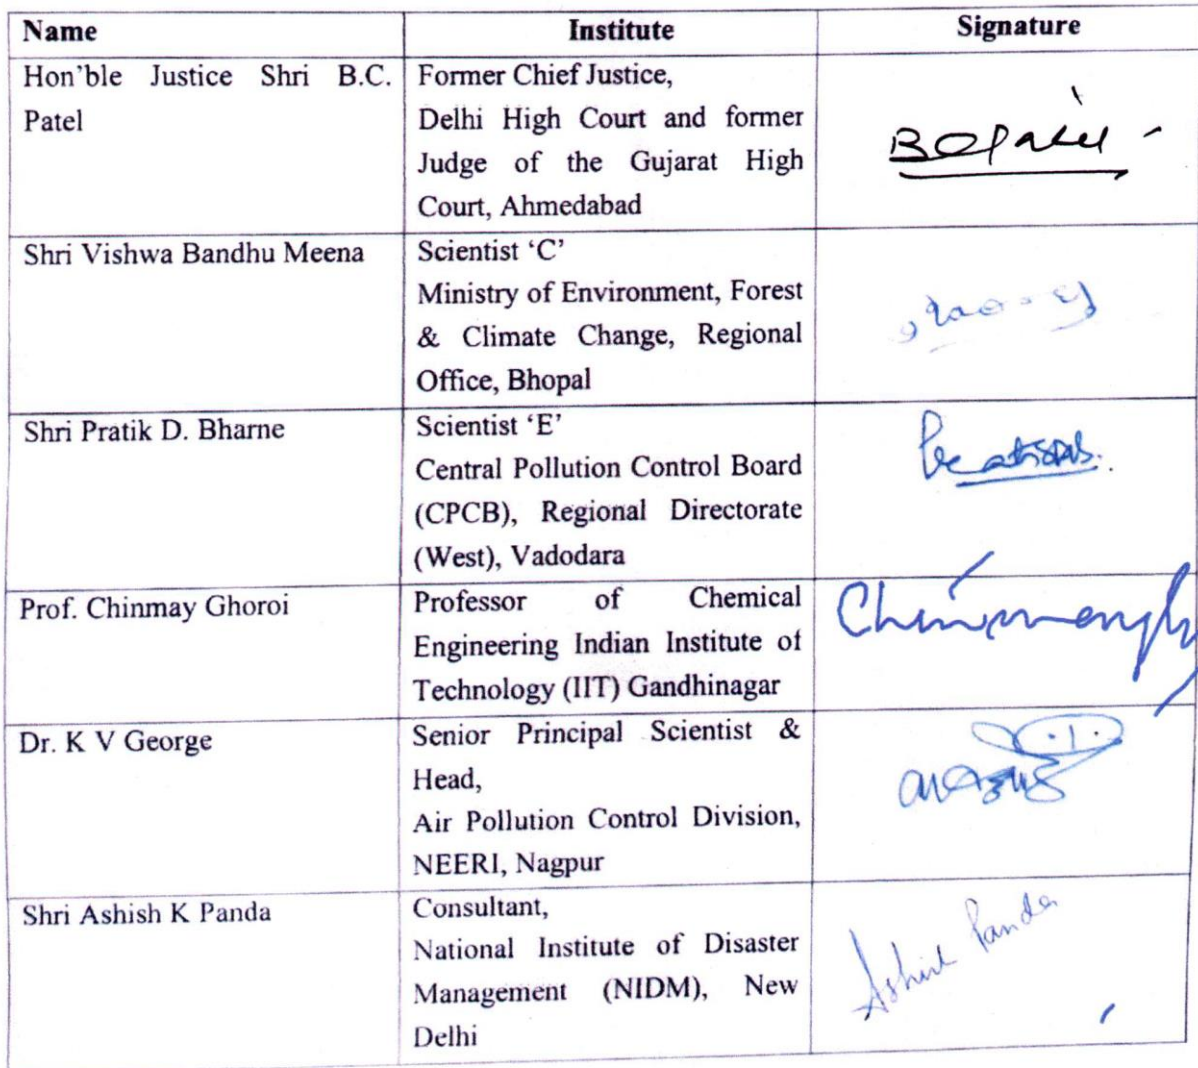 Name Institute Signature
Hon'ble Justice Shri B.C. Former Chief Justice,
Patel Delhi High Court and former
Judge of the Gujarat High
Court, Ahmedabad
BCPatel
Shri Vishwa Bandhu Meena Scientist 'C'
Ministry of Environment, Forest
& Climate Change, Regional
Office, Bhopal
Shri Pratik D. Bharne Scientist 'E'
Central Pollution Control Board
(CPCB), Regional Directorate
(West), Vadodara
Prof. Chinmay Ghoroi Professor of Chemical
Engineering Indian Institute of
Technology (IIT) Gandhinagar
Dr. K V George Senior Principal Scientist &
Head,
Air Pollution Control Division,
NEERI, Nagpur
Shri Ashish K Panda Consultant,
National Institute of Disaster
Management (NIDM), New
Delhi
Ashish Panda